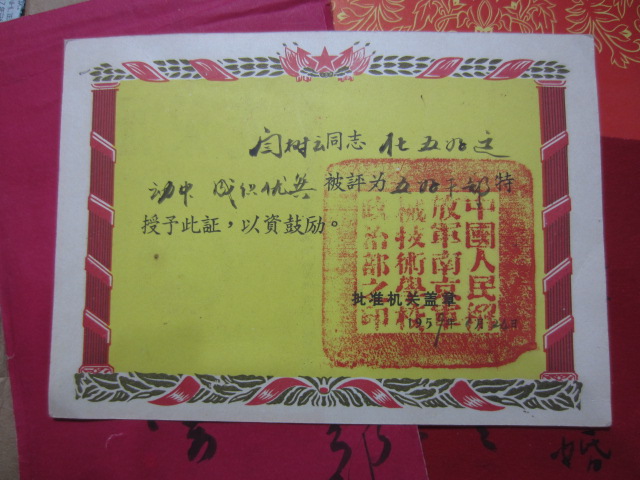 闫树云同志 在五好运
动中 成绩优异 被评为五好干部 特
授予此証，以資鼓励。
批准机关盖章
1959年 月 日
中國人民解
放軍南京軍
械技術學校
政治部之印
婚